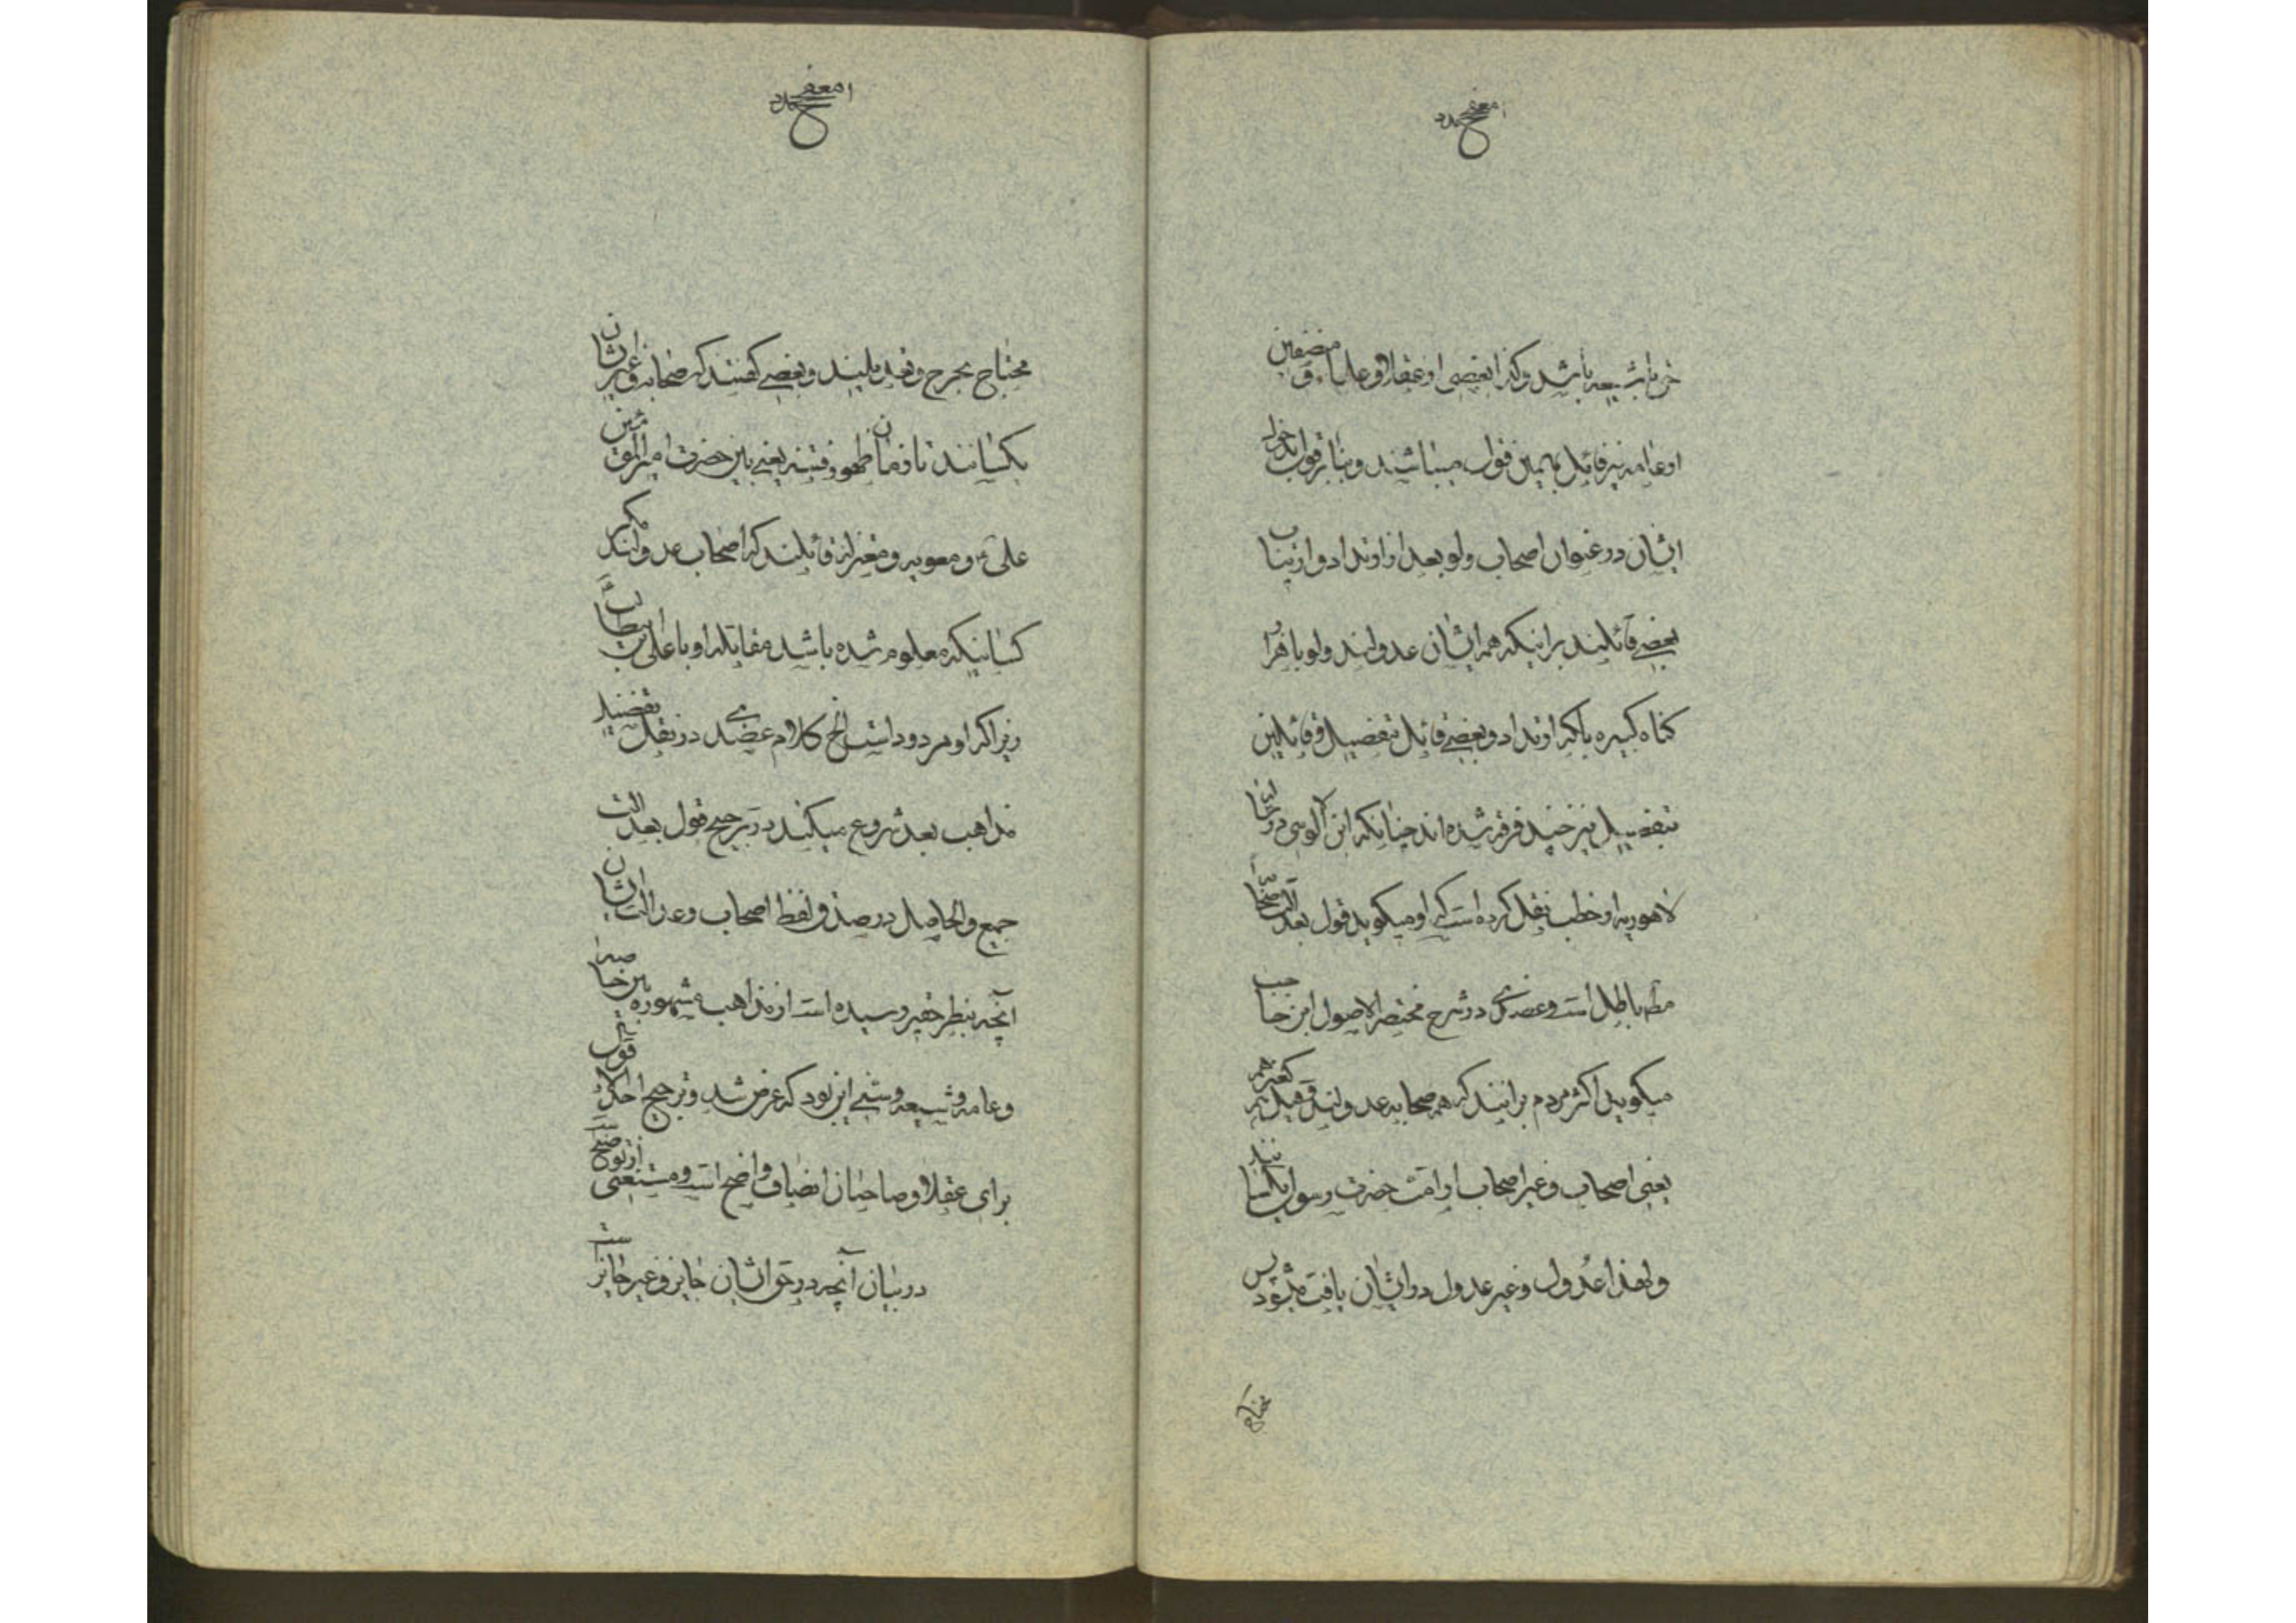 خرما شیعه باشد و کذا بعضی از عقلاء و علماء و منصفین
از عامه نیز قائل بهمین قول میباشند و بنابر قول بدخول
ایشان در عنوان اصحاب ولو بعد از ارتداد و ارتیاب
بعضی قائلند بر اینکه همه ایشان عدولند ولو با قرار
گناه کبیره بلکه ارتداد و بعضی قائل بتفصیل و قائلین
بتفصیل نیز چند فرقه شده اند چنانکه ابن آلوسی در رسا
لاهوریه از خطب نقل کرده است که او میگوید قول بعدالت صحابه
مط باطل است و عضدی در شرح مختصر الاصول ابن حاجب
میگوید اکثر مردم برانند که همه صحابه عدولند و قیل هم کغیرهم
یعنی اصحاب و غیر اصحاب از امت حضرت رسول یکسانند
و لهذا عدول و غیر عدول در ایشان یافت میشود پس
محتاج
محتاج بجرح و تعدیلیند و بعضی گفتند که صحابه و غیرشان
یکسانند تا زمان ظهور فتنه یعنی بین حضرت امیرالمؤمنین
علی ع و معویه و معتزله قائلند که اصحاب عدولند مگر
کسانیکه معلوم شده باشد مقاتله او با علی بن ابیطالب
زیرا که او مردود است الخ کلام عضدی در نقل تفصیل
مذاهب بعد شروع میکند در ترجیح قول بعدالت
جمیع والحاصل در صدق لفظ اصحاب و عدالت ایشان
آنچه بنظر حقیر رسیده است از مذاهب مشهوره بین خاصه
و عامه و شیعه و سنی این بود که عرض شد و ترجیح احد الاقوال
برای عقلا و صاحبان انصاف واضح است و مستغنی از توضیح
در بیان آنچه در حق ایشان جایز و غیر جایز است